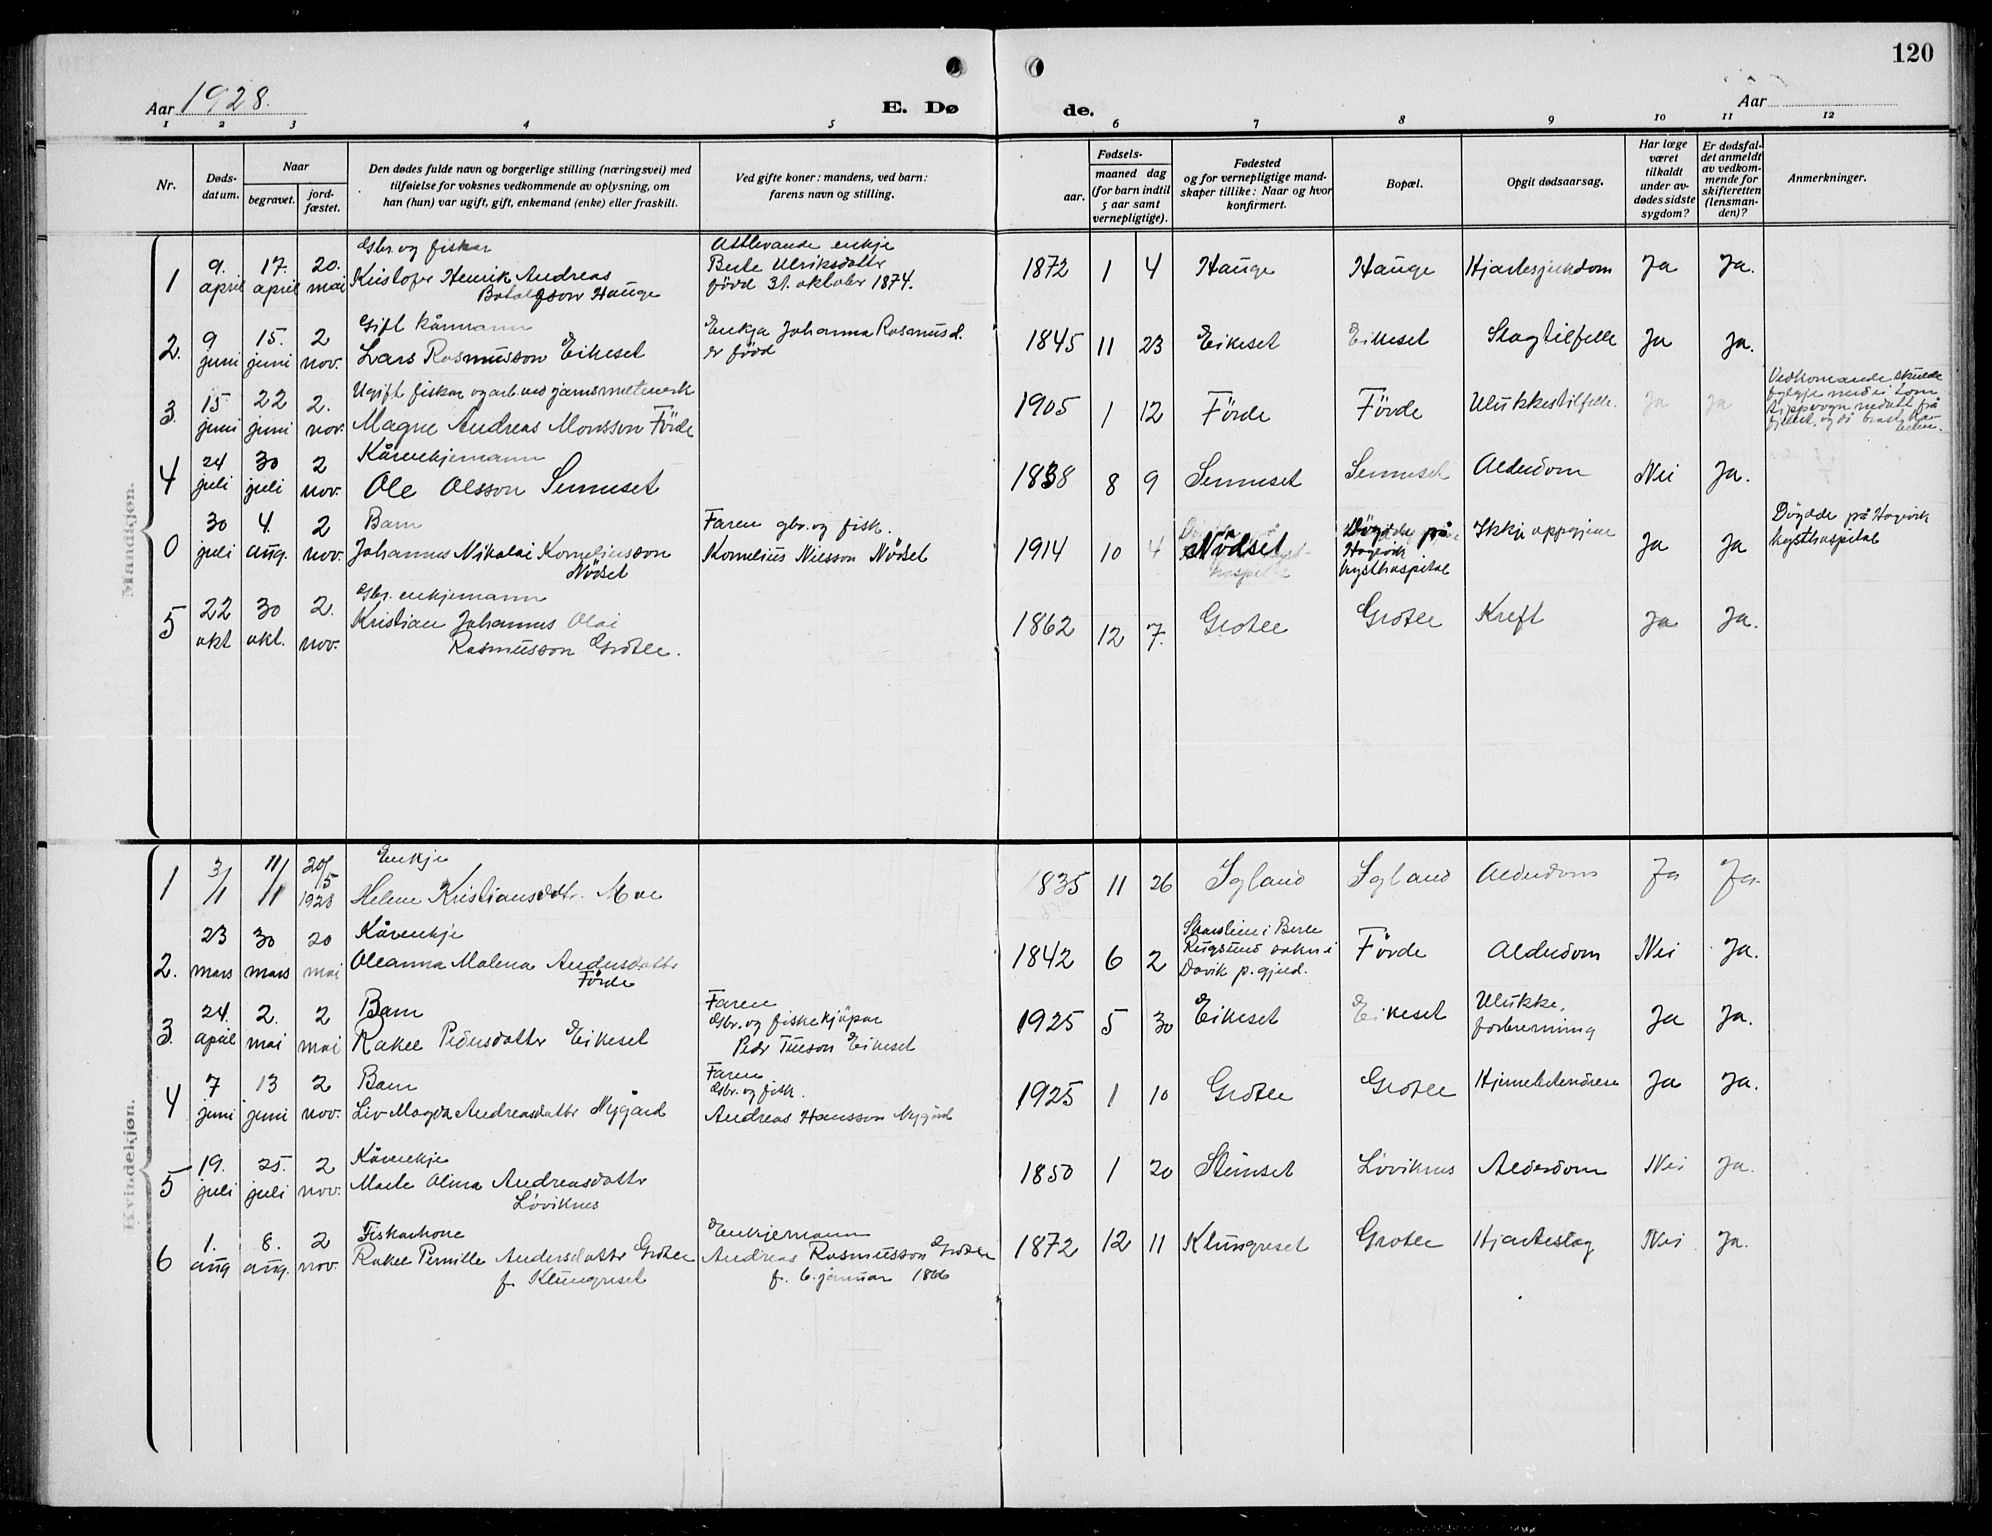 120
Aar 1928.
E. Dø
de.
Aar
1 2 3 4 5 6 7 8 9 10 11 12
Nr.
Døds-
datum.
Naar
begravet.
jord-
fæstet.
Den dødes fulde navn og borgerlige stilling (næringsvei) med
tilføielse for voksnes vedkommende av oplysning, om
han (hun) var ugift, gift, enkemand (enke) eller fraskilt.
Ved gifte koner: mandens, ved barn:
farens navn og stilling.
Fødsels-
aar.
maaned dag
(for barn indtil
5 aar samt
vernepligtige).
Fødested
og for vernepligtige mand-
skaper tillike: Naar og hvor
konfirmert.
Bopæl.
Opgit dødsaarsag.
Har læge
været
tilkaldt
under av-
dødes sidste
sygdom?
Er dødsfal-
det anmeldt
av vedkom-
mende for
skifteretten
(lensman-
den)?
Anmerkninger.
Mandkjøn.
Gbr. og fiskar
Attlevande enkje
1 9. april 17. april 20. mai Kristofer Henrik Andreas
Botolfson Hauge
Berte Ulriksdatter
född 31. oktober 1874.
1872 1 4 Hauge Hauge Hjartesjukdom Ja Ja.
Gift kårmann
2. 9 juni 15. juni 2 nov. Lars Rasmusson Eikeset
Enkja Johanna Rasmusd.
er född
1845 11 23 Eikeset Eikeset Slagtilfelle Ja Ja.
Ugift fiskar og arb. ved
3. 15. juni 22 juni 2. nov. Magne Andreas Monsson Förde
1905 1 12 Förde Förde Ulukkestilfelle. Ja Ja
Vedkomande skulde
fylgje med ei tom
tippvogn nedatt frå
fjellet, og då brast
Kårenkjemann
4 24 juli 30 juli 2 nov. Ole Olsson Senneset
1838 8 9 Senneset Senneset Alderdom Nei Ja.
Barn
Faren gbr. og fisk.
0 30 juli 4. aug. 2 nov. Johannes Nikolai Korneliusson
Nödset
Kornelius Nilsson Nödset
1914 10 4 Nödset
Döydde på
Hagevik
kysthospital
Ikkje oppgjeve Ja Ja
Döydde på Hagevik
kysthospital
Gbr. enkjemann
5 22 okt 30 okt. 2. nov. Kristian Johannes Olai
Rasmusson Grotle.
1862 12 7. Grotle Grotle Kreft Ja Ja.
Kvindekjøn.
Enkje
1 3/1 11/1 20/5 1928 Helene Kristiansdtr. Moe
1835 11 26 Igland Igland Alderdom Ja Ja.
Kårenkje
2. 23 mars 30 mars 20 mai Oleanna Malena Andersdatter
Förde
1842 6 2
i Berle
Rugsund sokn i
Davik p. gjeld.
Förde Alderdom Nei Ja.
Barn
3. 24. april 2. mai 2 mai Rakel Pedersdatter Eikeset
Faren
Gbr. og fiskekjöpar
Peder Eikeset
1925 5 30 Eikeset Eikeset Ulukke,
forbrenning
Ja Ja.
Barn
4 7 juni 13 juni 2 nov. Liv Magda Andreasdatter Nygård
Faren
Gbr. og fisk.
Andreas Hansson Nygård
1925 1 10 Grotle Grotle Ja Ja.
Kårenkje
5 19. juli 25. juli 2 nov. Marte Olina Andreasdatter
Löviknes
1850 1 20 Steinset Löviknes Alderdom Nei Ja.
Fiskarkone
6 1. aug 8. aug. 2 nov. Rakel Pernille Andersdatter Grotle
f. Klungreset
Enkjemann
Andreas Rasmusson Grotle
f. 6. januar 1866
1872 12 11 Klungreset Grotle Hjarteslag Nei Ja.